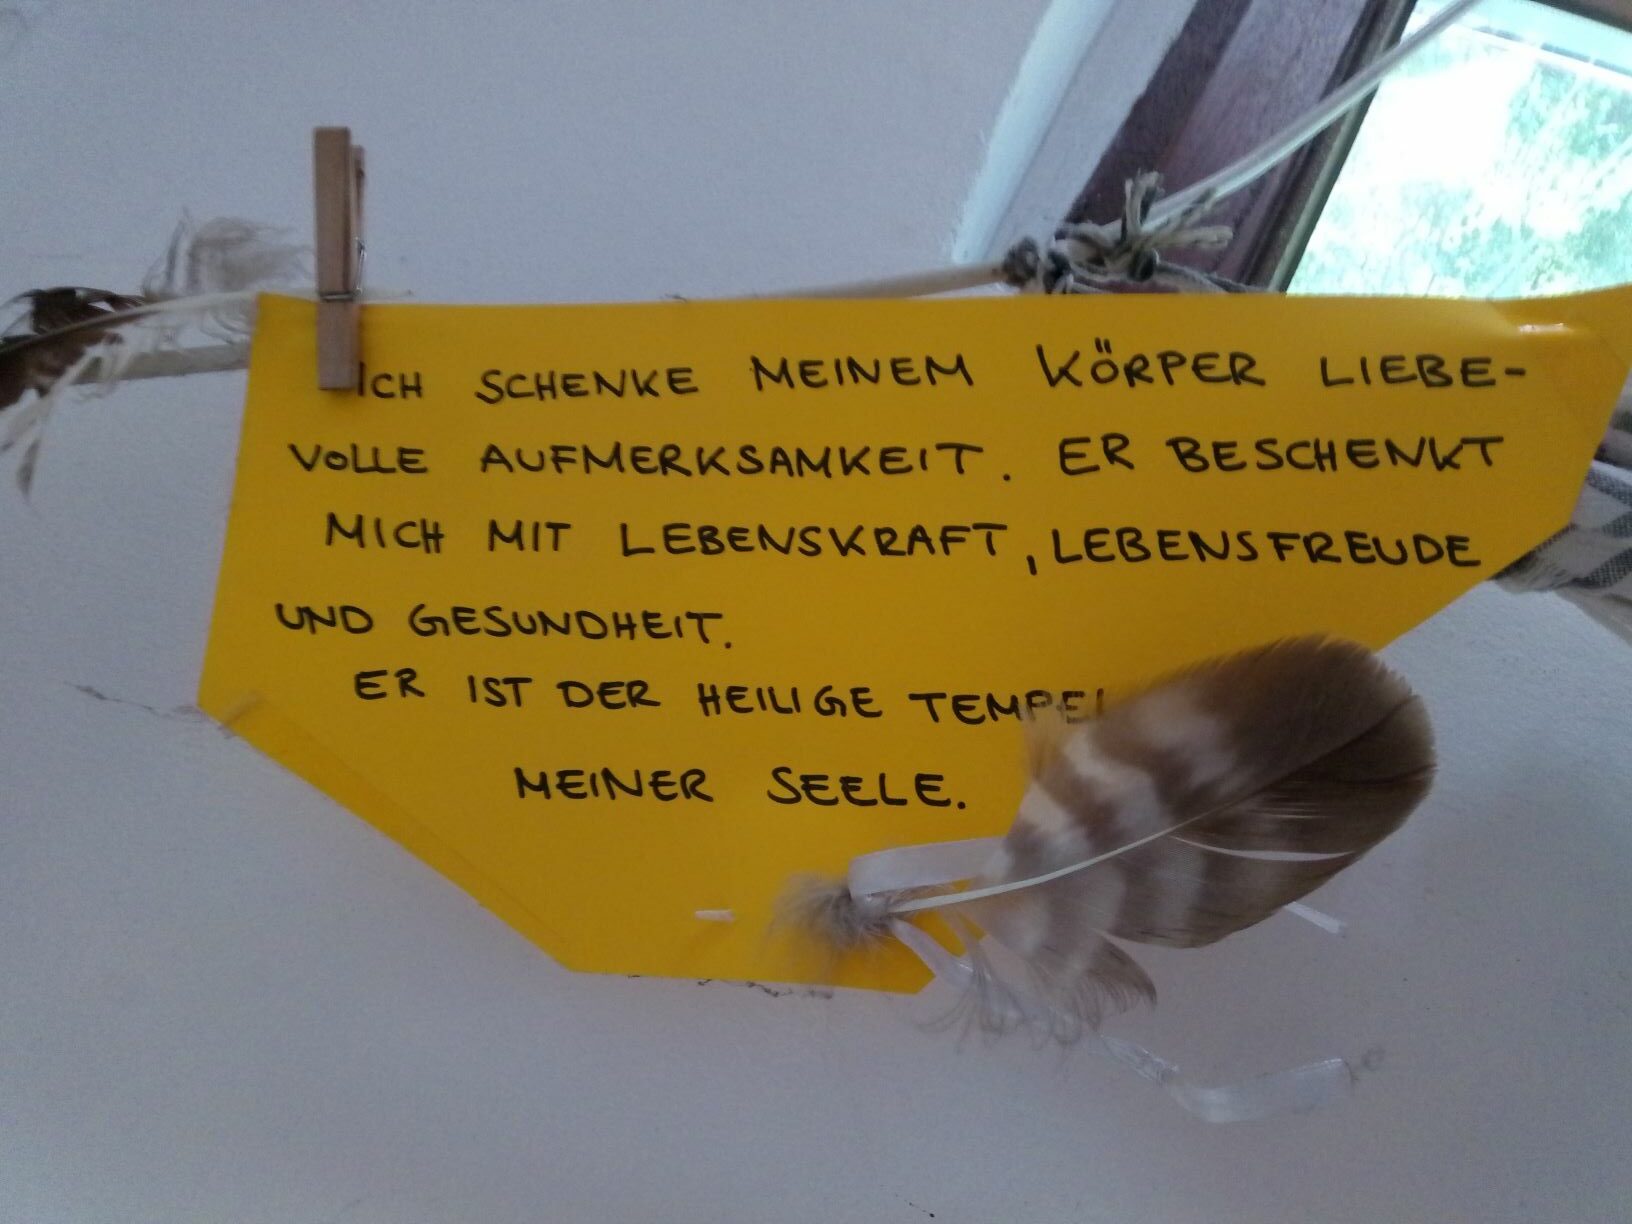 ICH SCHENKE MEINEM KÖRPER LIEBE-
VOLLE AUFMERKSAMKEIT. ER BESCHENKT
MICH MIT LEBENSKRAFT, LEBENSFREUDE
UND GESUNDHEIT.
ER IST DER HEILIGE TEMPEL
MEINER SEELE.